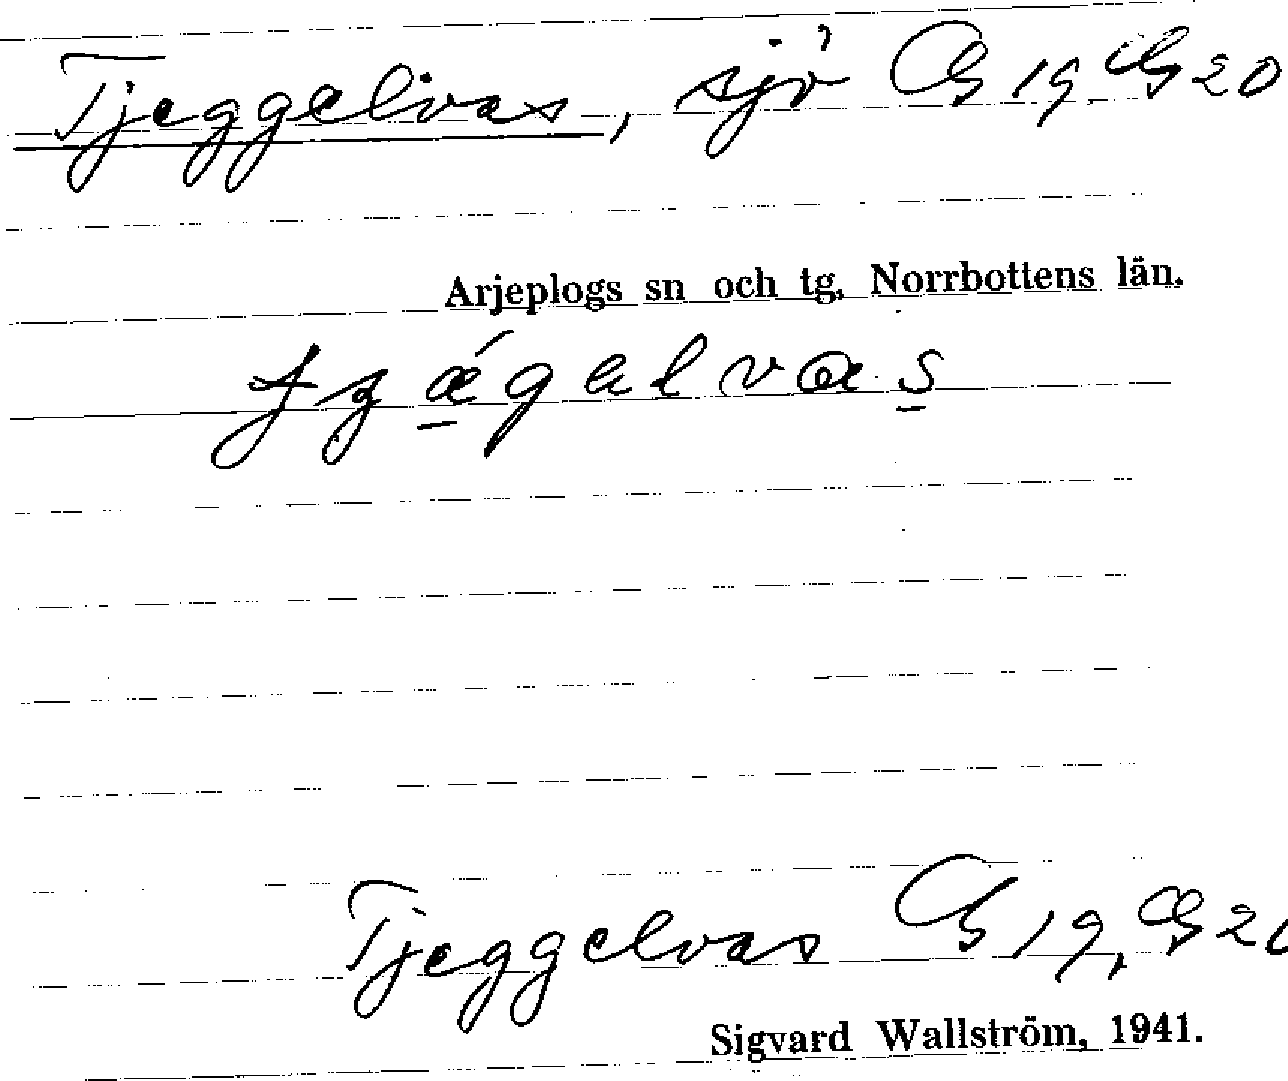 Tjeggelvas, sjö G 19, G 20
Arjeplogs sn och tg. Norrbottens län.
Tjeggelvas G 19, G 20
Sigvard Wallström, 1941.